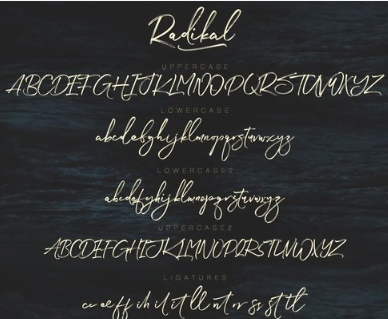 Radikal
UPPERCASE
ABCDEFGHIJKLMNOPQRSTUVWXYZ
LOWERCASE
abcdefghijklmnopqrstuvwxyz
LOWERCASE2
abcdefghijklmnopqrstuvwxyz
UPPERCASE2
ABCDEFGHIJKLMNOPQRSTUVWXYZ
LIGATURES